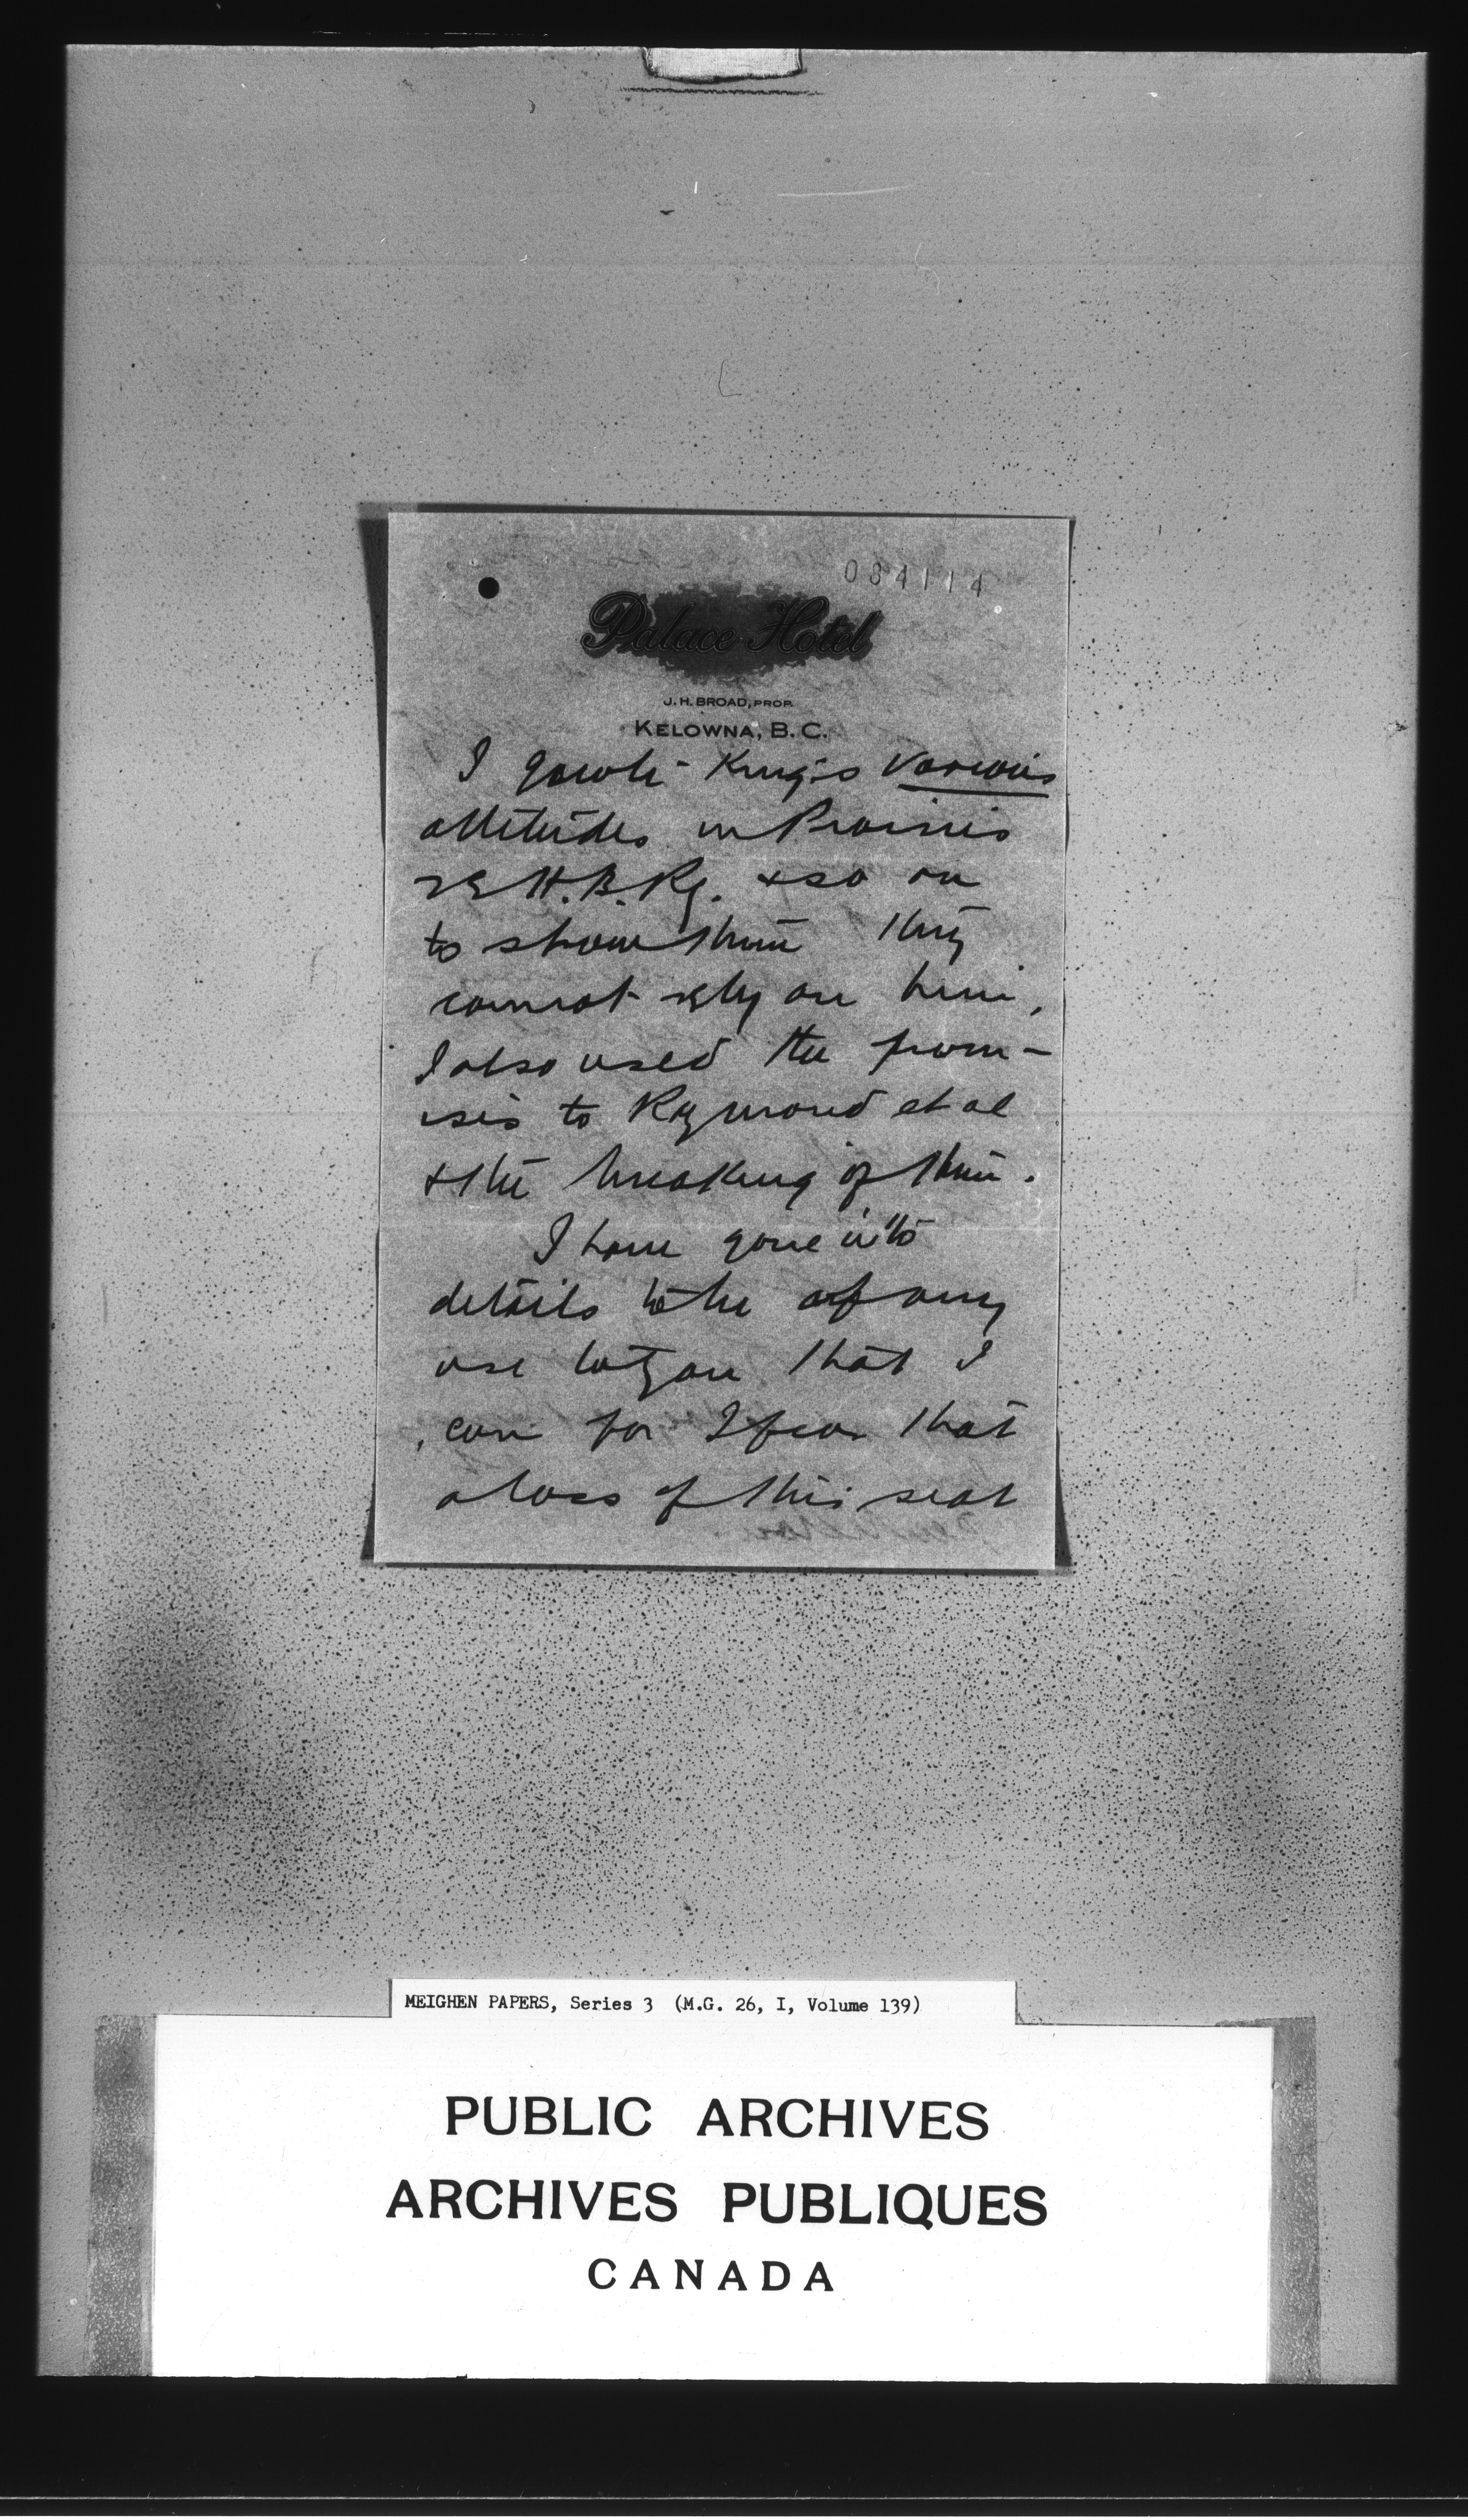 084114
Palace Hotel
J. H. BROAD, PROP.
KELOWNA, B. C.
I quote King's various
attitudes in Prairies
re H. B. Ry. + so on
to show them they
cannot rely on him,
I also used the prom-
ises to Raymond et al
+ the breaking of them.
I have gone into
details to be of any
use to you that I
can for I fear that
a loss of this seat
MEIGHEN PAPERS, Series 3 (M.G. 26, I, Volume 139)
PUBLIC ARCHIVES
ARCHIVES PUBLIQUES
CANADA